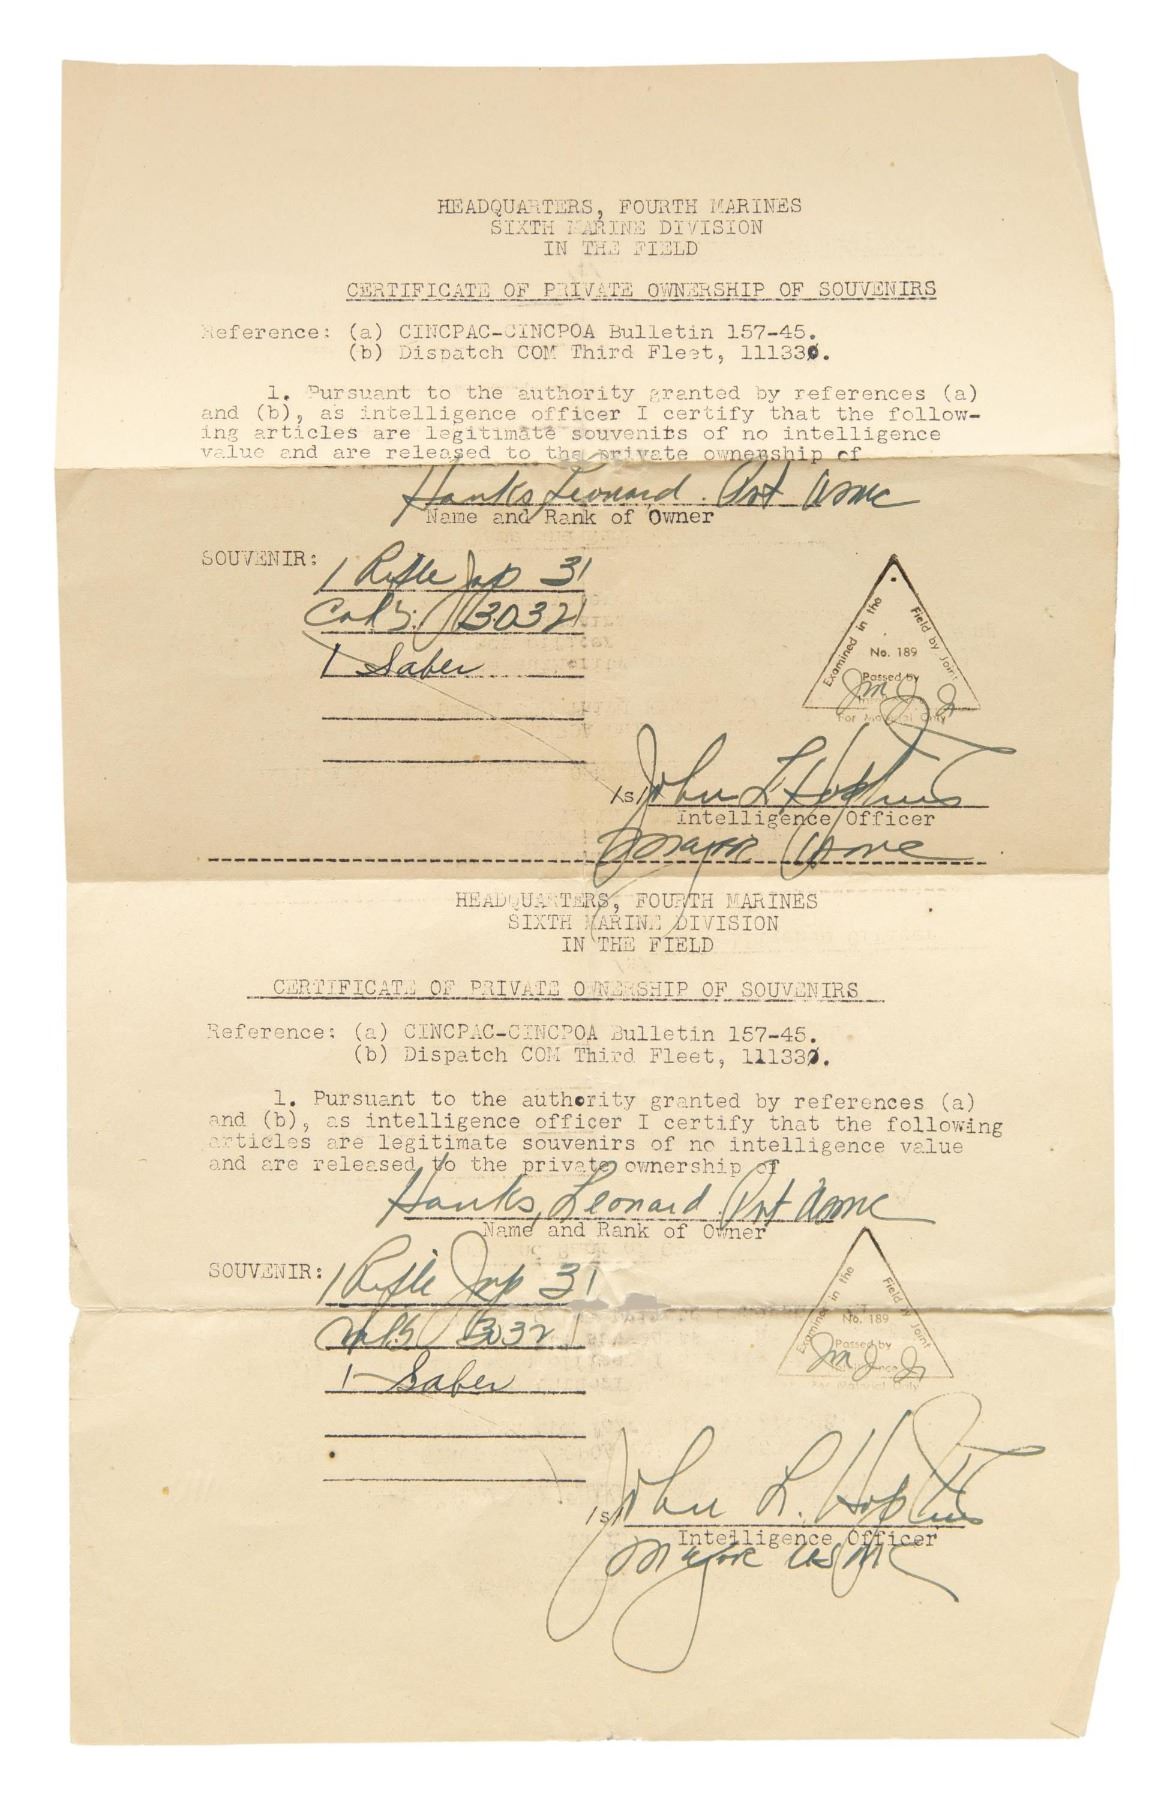 HEADQUARTERS, FOURTH MARINES
SIXTH MARINE DIVISION
IN THE FIELD
CERTIFICATE OF PRIVATE OWNERSHIP OF SOUVENIRS
Reference: (a) CINCPAC-CINCPOA Bulletin 157-45.
(b) Dispatch COM Third Fleet, 111330.
1. Pursuant to the authority granted by references (a)
and (b), as intelligence officer I certify that the follow-
ing articles are legitimate souvenirs of no intelligence
value and are released to the private ownership of
Hanks, Leonard. Pvt USMC
Name and Rank of Owner
SOUVENIR:
1 Rifle Jap 31
13032
1 Saber
Examined in the Field by Joint
No. 189
Passed by
For Material Only
/s/ John L Hopkins
Intelligence Officer
Major USMC
HEADQUARTERS, FOURTH MARINES
SIXTH MARINE DIVISION
IN THE FIELD
CERTIFICATE OF PRIVATE OWNERSHIP OF SOUVENIRS
Reference: (a) CINCPAC-CINCPOA Bulletin 157-45.
(b) Dispatch COM Third Fleet, 111330.
1. Pursuant to the authority granted by references (a)
and (b), as intelligence officer I certify that the following
articles are legitimate souvenirs of no intelligence value
and are released to the private ownership of
Hanks, Leonard. Pvt USMC
Name and Rank of Owner
SOUVENIR:
1 Rifle Jap 31
13032
1 - Saber
Examined in the Field by Joint
No. 189
Passed by
For Material Only
/s/ John L. Hopkins
Intelligence Officer
Major USMC